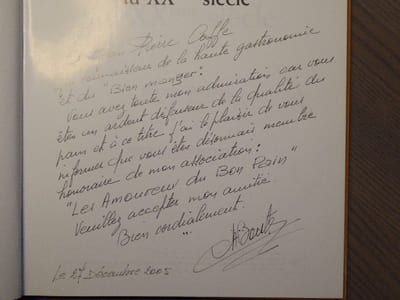 du XXe siècle
Jean Pierre Coffe
connaisseur de la haute gastronomie
et du "Bien manger".
Vous avez toute mon admiration car vous
êtes un ardent défenseur de la qualité du
pain et à ce titre j'ai le plaisir de vous
informer que vous êtes désormais membre
honoraire de mon association:
"Les Amoureux du Bon Pain"
Veuillez accepter mon amitié
Bien cordialement.
Le 27 Décembre 2005